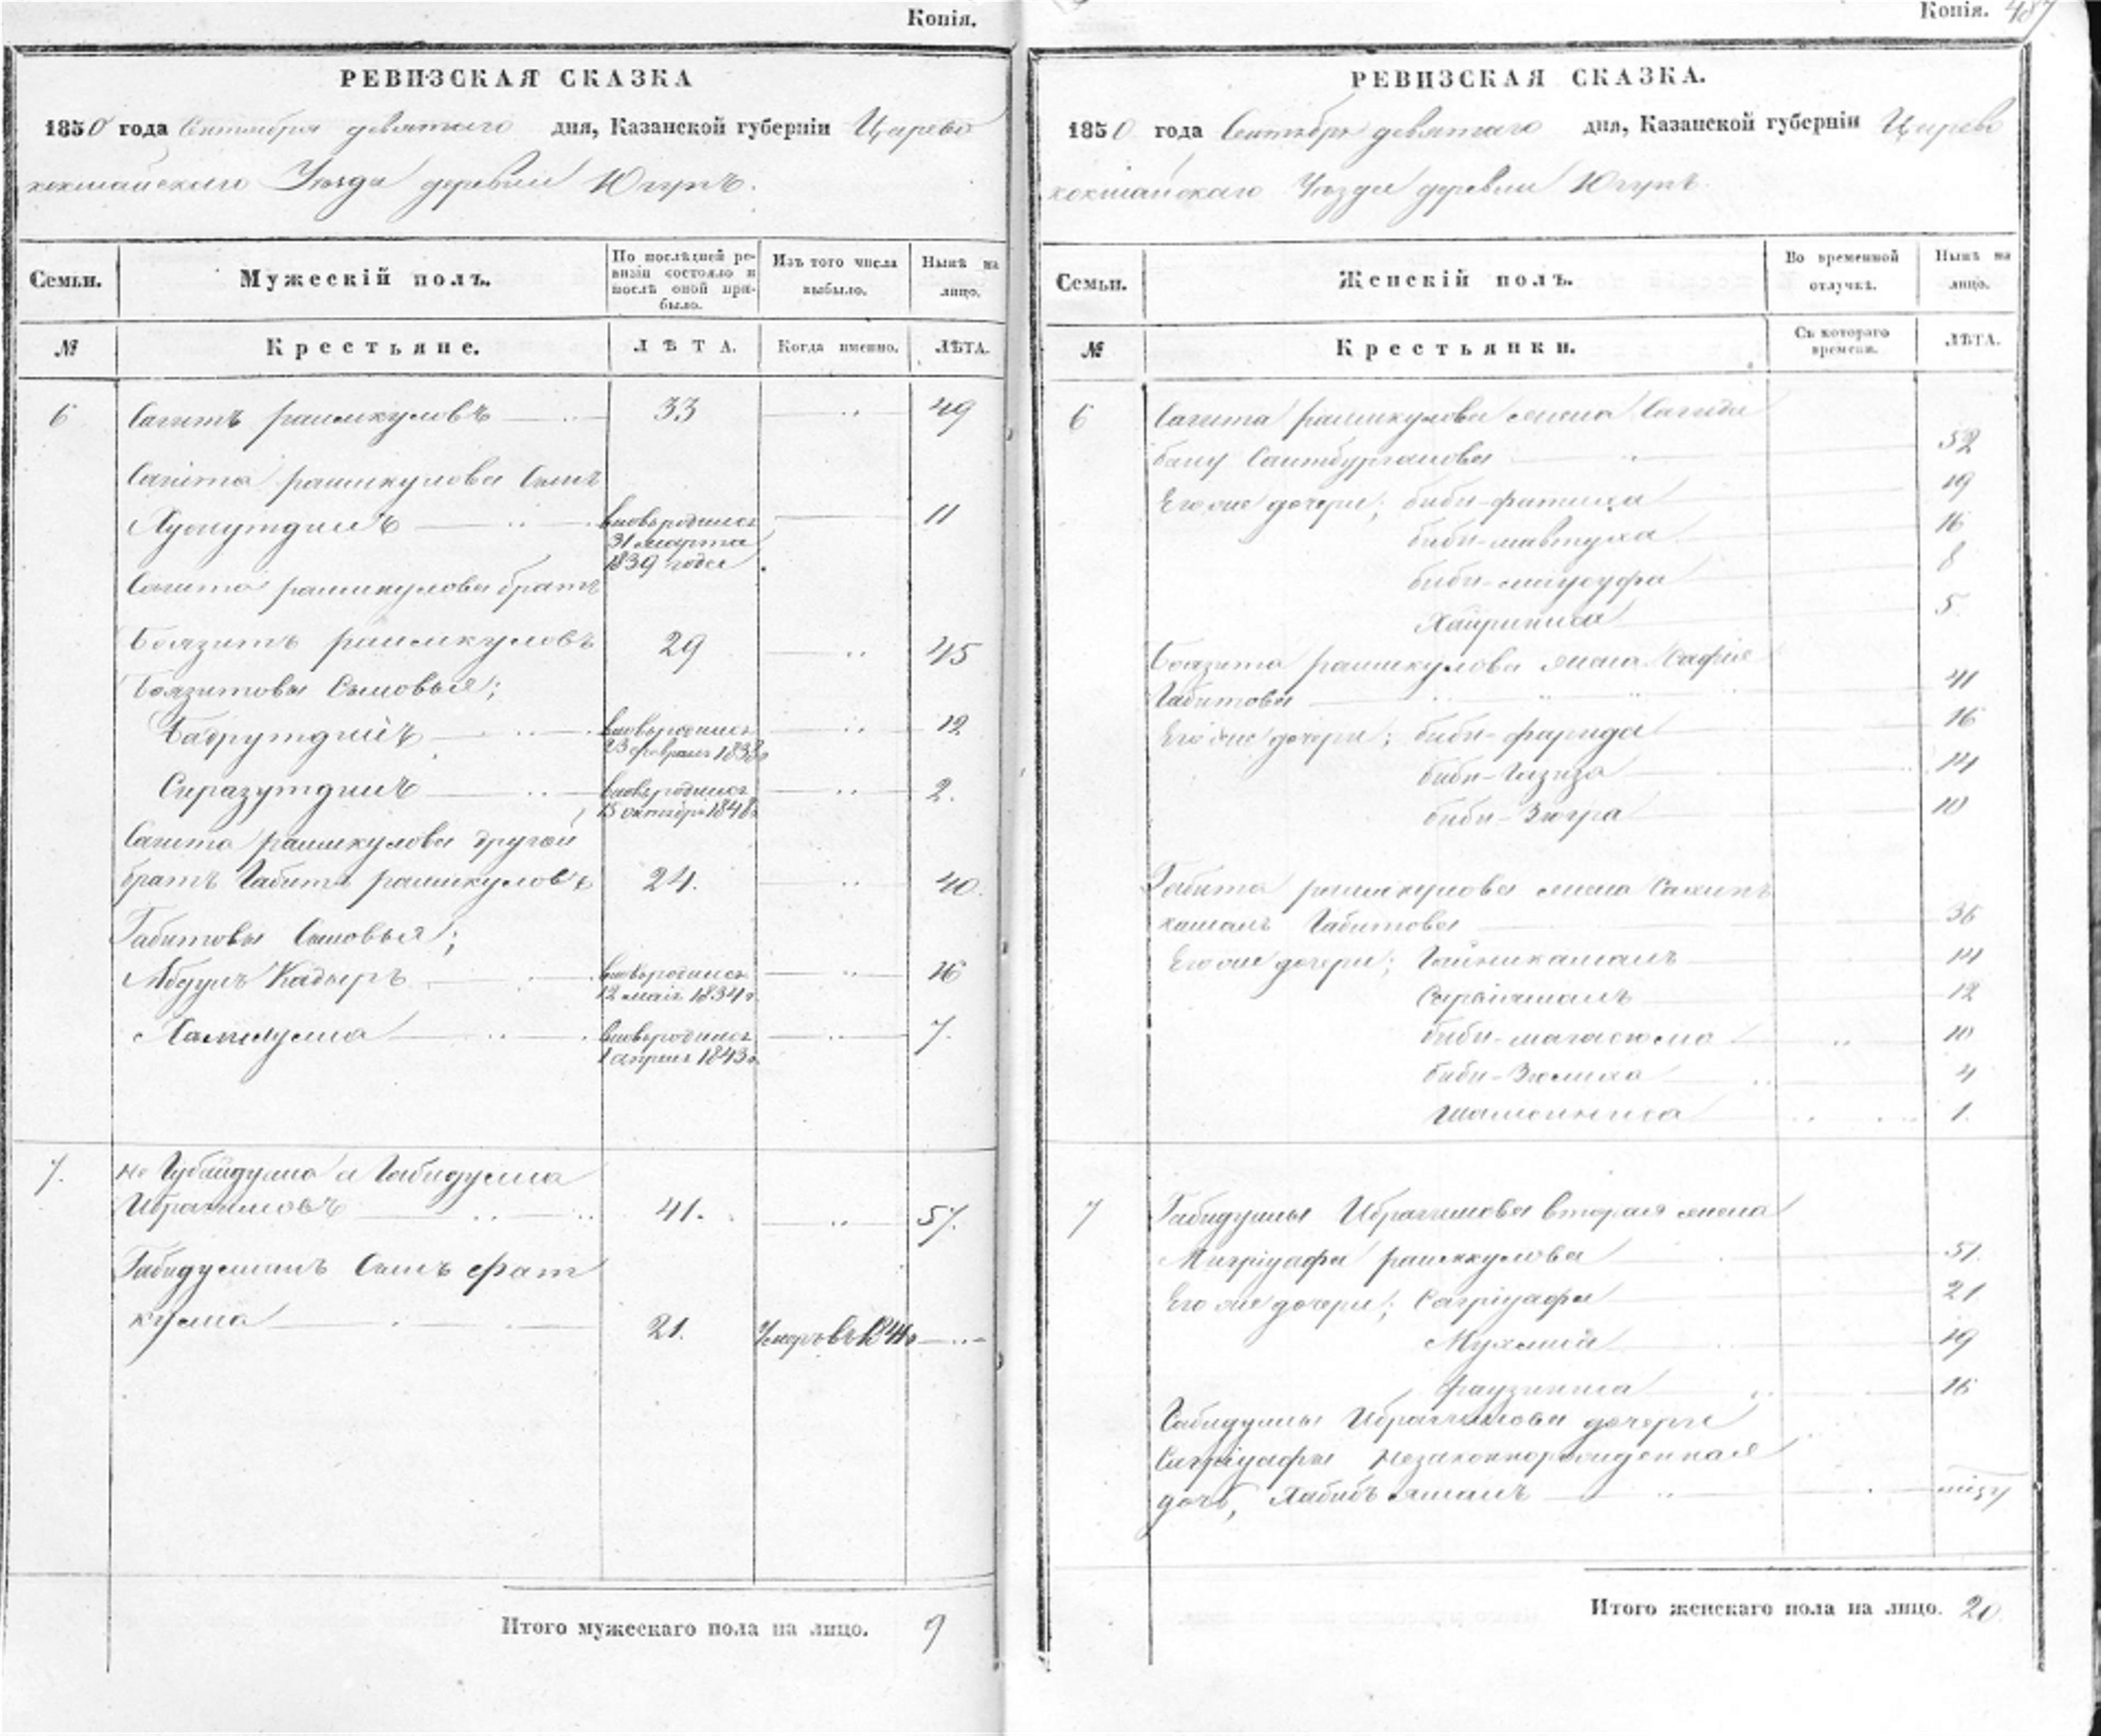 Копія.
РЕВИЗСКАЯ СКАЗКА
1850 года Сентября девятаго дня, Казанской губерніи Царево
кокшайскаго Уѣзда деревни Югупъ.
Семьи.
Мужескій полъ.
По послѣдней ре-
визіи состояло и
послѣ оной при-
было.
Изъ того числа
выбыло.
Нынѣ на
лицо.
№
Крестьяне.
ЛѢТА.
Когда именно.
ЛѢТА.
6 Сагитъ раимкуловъ 33 49
Сагита раимкулова Сынъ
вновьродился 11
31 марта
1839 года
Сагита раимкулова братъ
Баязитъ раимкуловъ 29 45
Баязитовы Сыновья;
Бадрутдинъ вновьродился 12
23 февраля 1838г
Сиразутдинъ вновьродился 2.
15 октября 1848г
Сагита раимкулова другой
братъ Габитъ раимкуловъ 24. 40.
Габитовы Сыновья;
Абдулъ Кадыръ вновьродился 16
12 мая 1834г.
вновьродился 7.
1 апреля 1843г.
7. не Губайдулла а Габидулла
Ибрагимовъ 41. 57.
Габидуллинъ Сынъ Фат
кулла 21. Умеръ въ 1844г
Итого мужескаго пола на лицо. 9
Копія. 487
РЕВИЗСКАЯ СКАЗКА.
1850 года Сентября девятаго дня, Казанской губерніи Царево
кокшайскаго Уѣзда деревни Югупъ.
Семьи.
Женскій полъ.
Во временной
отлучкѣ.
Нынѣ на
лицо.
№
Крестьянки.
Съ котораго
времени.
ЛѢТА.
6 Сагита раимкулова жена Сагида
бану 52
Его же дочери; биби-фатиха 19
биби- 16
биби- 8
Хайриниса 5.
Баязита раимкулова жена Сафія
Габитова 41
Его же дочери; биби-фарида 16
биби-Газиза 14
биби-Зюгра 10
Габита раимкулова жена Сахипъ
жамалъ Габитова 36
Его же дочери; 14
12
биби- 10
биби-Зюлиха 4
Шамсиниса 1.
7 Габидуллы Ибрагимова вторая жена
раимкулова 51.
Его же дочери; 21
19
Фаузиниса 16
Габидуллы Ибрагимова дочери
незаконнорожденная
дочь, Хабибъ жамалъ
Итого женскаго пола на лицо. 20.